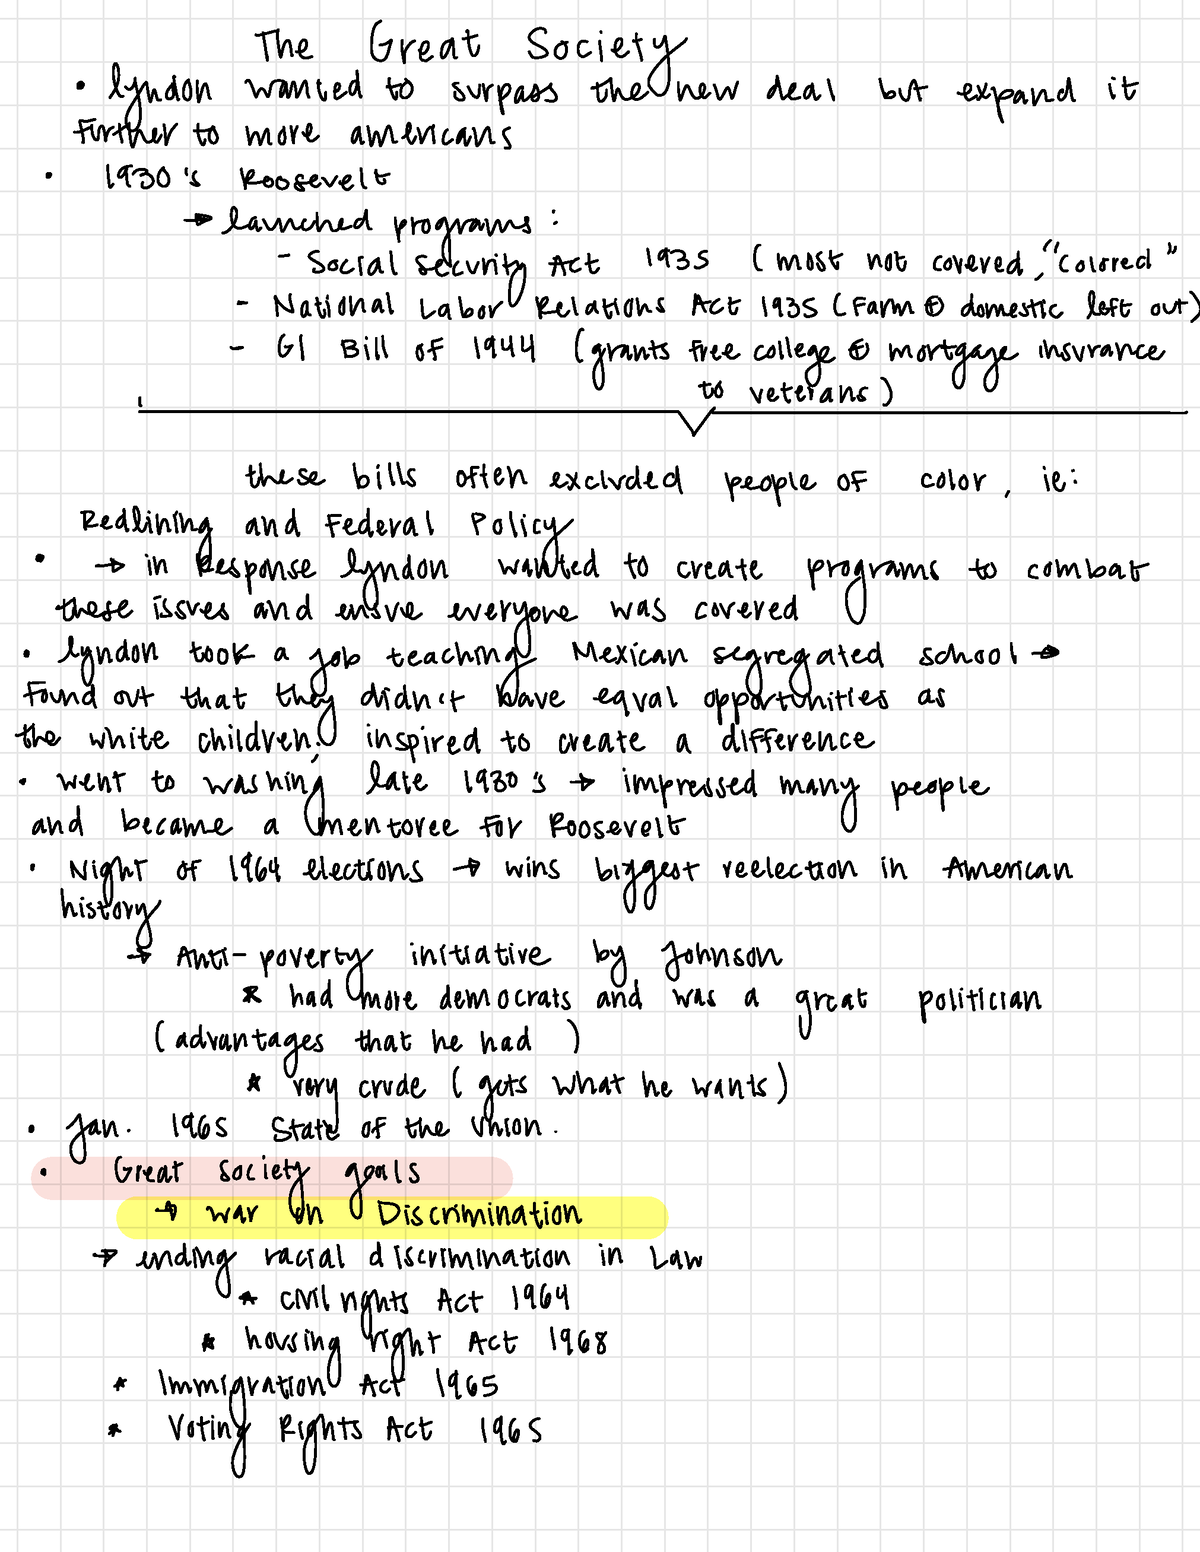 The Great Society
• lyndon wanted to surpass the new deal but expand it
further to more americans
• 1930's Roosevelt
→ launched programs:
- Social Security Act 1935 (most not covered, "colored"
- National Labor Relations Act 1935 (Farm ⊕ domestic left out)
- GI Bill of 1944 (grants free college ⊕ mortgage insurance
to veterans)
these bills often excluded people of color, ie:
Redlining and Federal Policy
• → in Response lyndon wanted to create programs to combat
these issues and ensure everyone was covered
• lyndon took a job teaching Mexican segregated school →
Found out that they didn't have equal opportunities as
the white children; inspired to create a difference
• went to washing late 1930's → impressed many people
and became a mentoree for Roosevelt
• Night of 1964 elections → wins biggest reelection in American
history
→ Anti-poverty initiative by Johnson
* had more democrats and was a great politician
(advantages that he had)
* very crude (gets what he wants)
• Jan. 1965 State of the Union.
• Great Society goals
→ war on Discrimination
→ ending racial discrimination in Law
* civil rights Act 1964
* housing right Act 1968
* Immigration Act 1965
* Voting Rights Act 1965